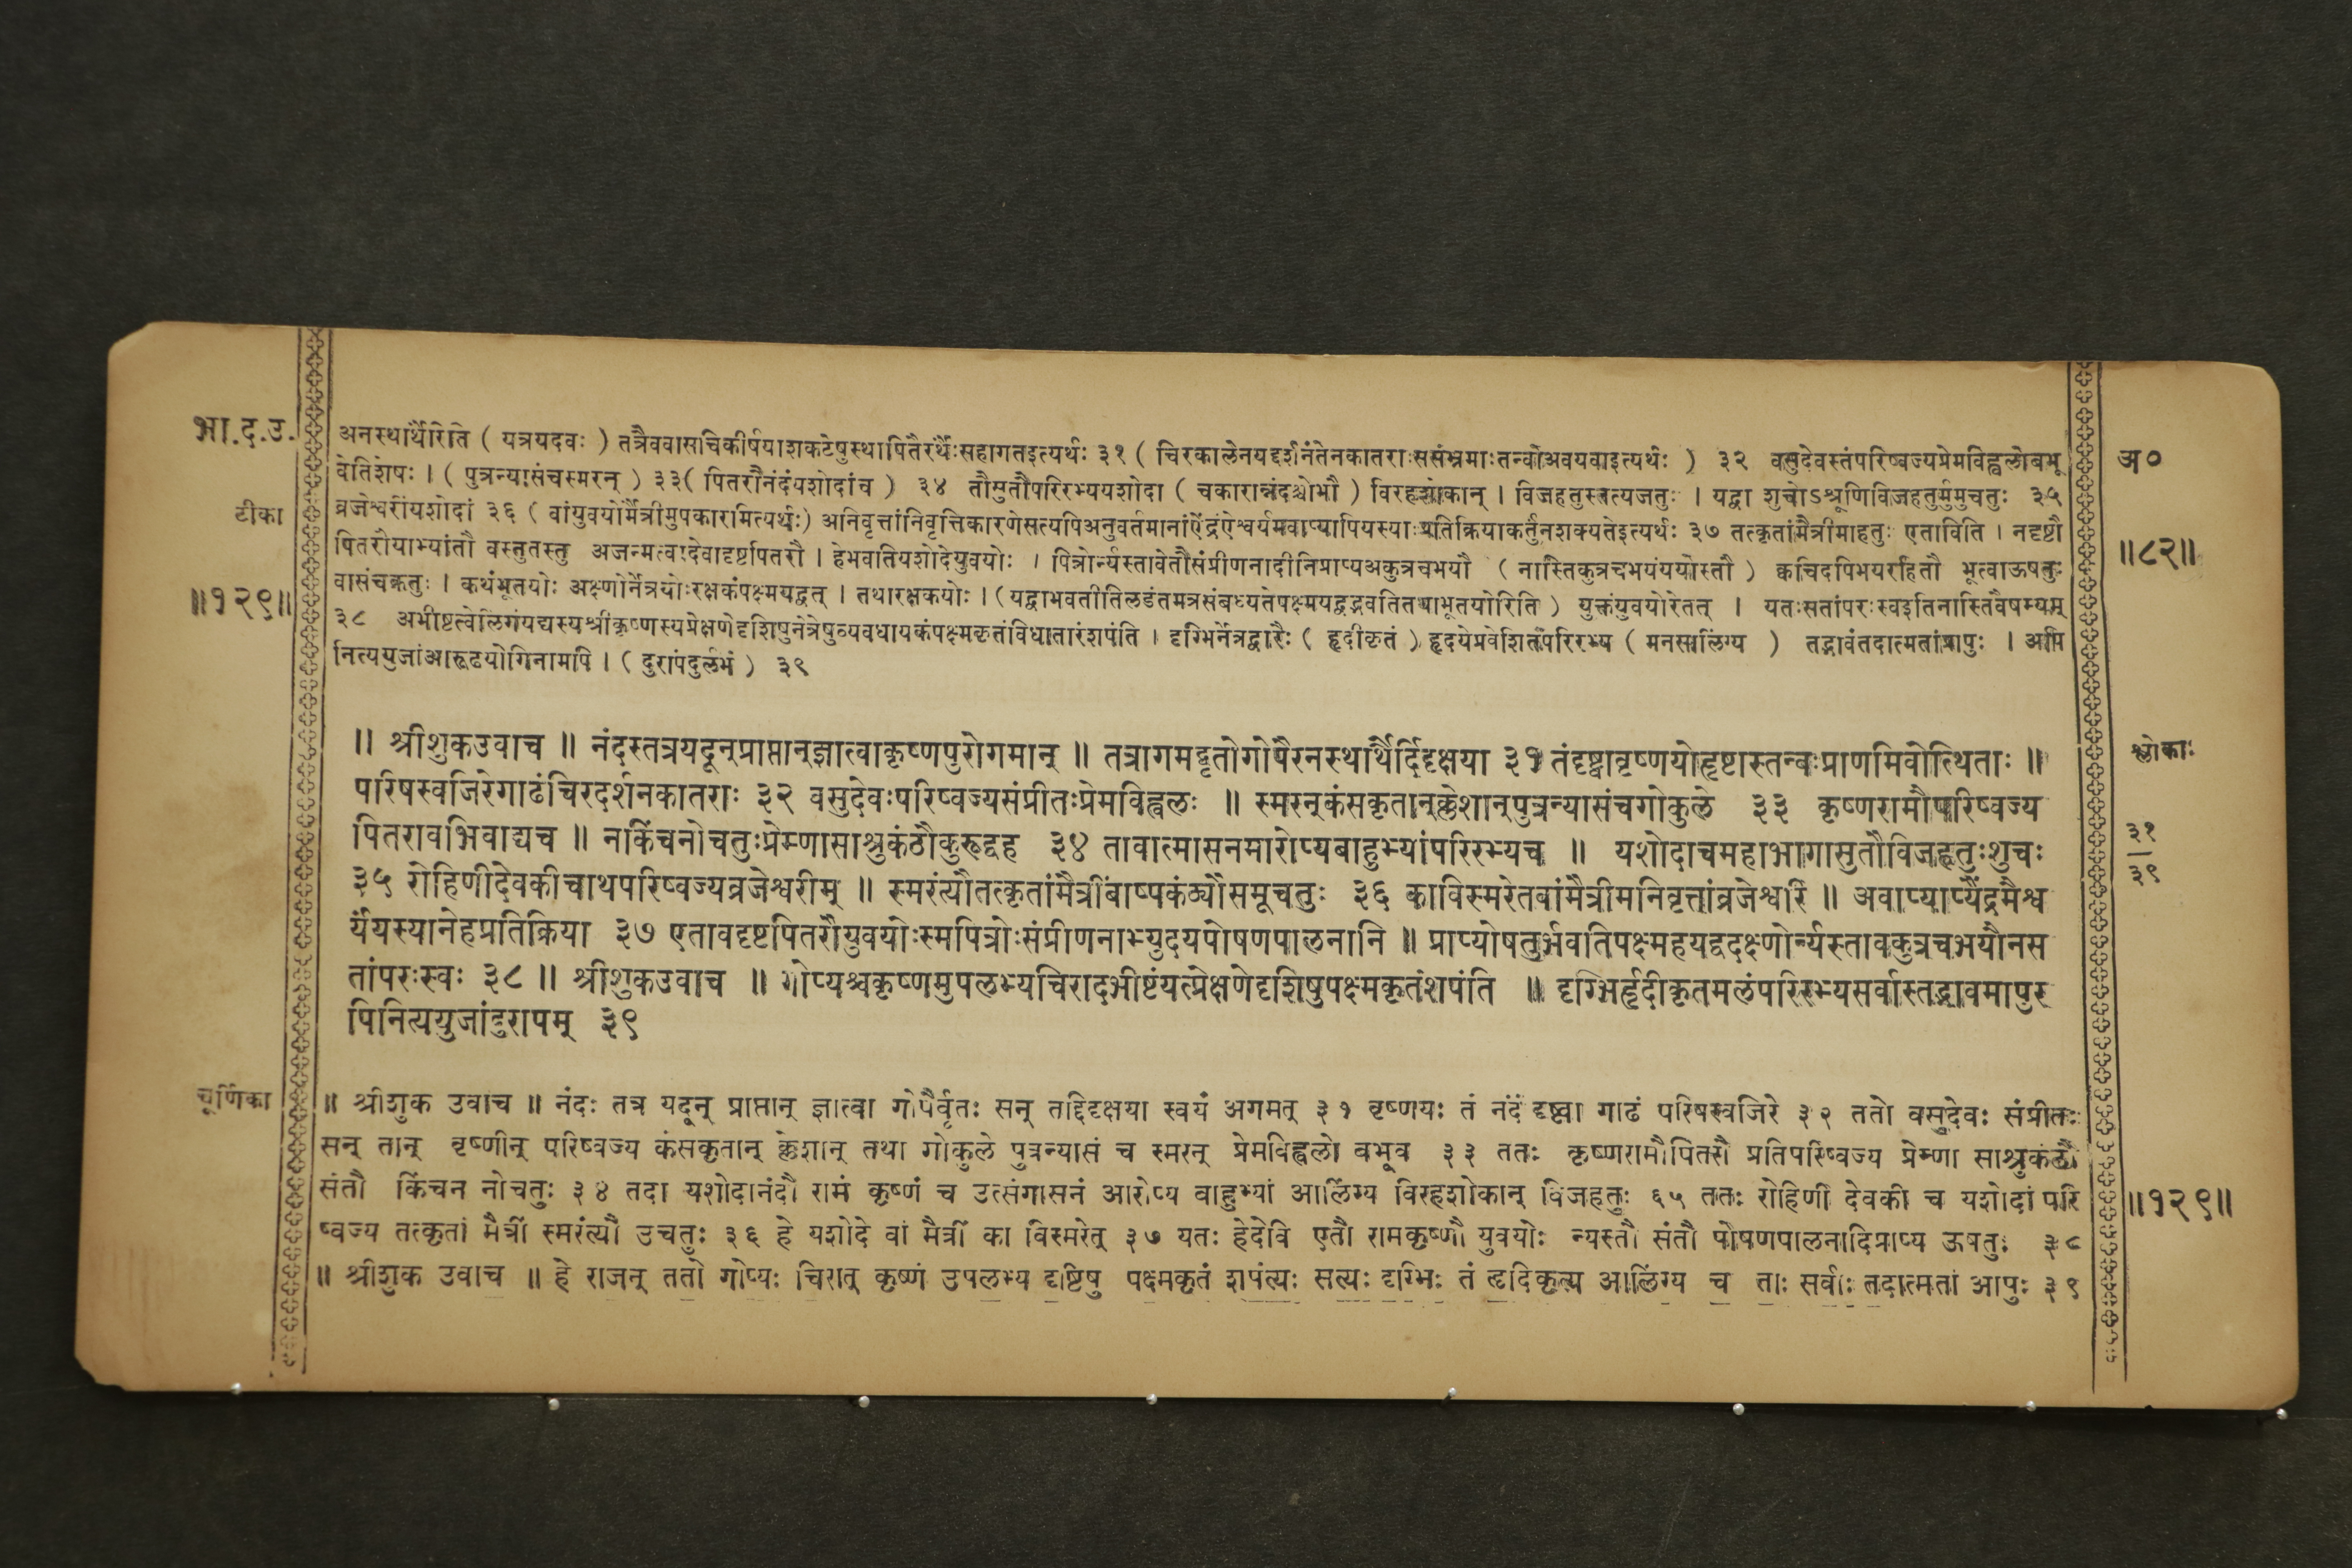 भा.द.उ.
टीका
॥१२९॥
अनस्थार्थैरिति ( यत्रयदवः ) तत्रैववासचिकीर्षयाशकटेषुस्थापितैरर्थैःसहागतइत्यर्थः ३१ ( चिरकालेनयद्दर्शनंतेनकातराःससंभ्रमाःतन्वोअवयवाइत्यर्थः ) ३२ वसुदेवस्तंपरिष्वज्यप्रेमविह्वलोबभू
वेतिशेषः । ( पुत्रन्यासंचस्मरन् ) ३३( पितरौनंदंयशोदांच ) ३४ तौसुतौपरिरभ्ययशोदा ( चकारान्नंदश्चोभौ ) विरहशोकान् । विजहतुस्तत्यजतुः । यद्वा शुचोऽश्रूणिविजहतुर्मुमुचतुः ३५
व्रजेश्वरींयशोदां ३६ ( वांयुवयोर्मैत्रीमुपकारामित्यर्थः) अनिवृत्तांनिवृत्तिकारणेसत्यपिअनुवर्तमानांऐंद्रंऐश्वर्यमवाप्यापियस्याःप्रतिक्रियाकर्तुंनशक्यतेइत्यर्थः ३७ तत्कृतांमैत्रीमाहतुः एताविति । नदृष्टौ
पितरौयाभ्यांतौ वस्तुतस्तु अजन्मत्वादेवादृष्टपितरौ । हेभवतियशोदेयुवयोः । पित्रोर्न्यस्तावेतौसंप्रीणनादीनिप्राप्यअकुत्रचभयौ ( नास्तिकुत्रचभयंययोस्तौ ) क्वचिदपिभयरहितौ भूत्वाऊषतुः
वासंचक्रतुः । कथंभूतयोः अक्ष्णोर्नेत्रयोःरक्षकंपक्ष्मयद्वत् । तथारक्षकयोः । (यद्वाभवतीतिलडंतमत्रसंबध्यतेपक्ष्मयद्वद्भवतितथाभूतयोरिति ) युक्तंयुवयोरेतत् । यतःसतांपरःस्वइतिनास्तिवैषम्यम्
३८ अभीष्टत्वेलिंगंयद्यस्यश्रीकृष्णस्यप्रेक्षणेदृशिषुनेत्रेषुव्यवधायकंपक्ष्मकृतांविधातारंशपंति । दृग्भिर्नेत्रद्वारैः ( हृदीकृतं ) हृदयेप्रवेशितंपरिरभ्य ( मनसालिंग्य ) तद्भावंतदात्मतांप्रापुः । अपि
नित्ययुजांआरूढयोगिनामपि । ( दुरापंदुर्लभं ) ३९
अ०
॥८२॥
॥ श्रीशुकउवाच ॥ नंदस्तत्रयदून्प्राप्तान्ज्ञात्वाकृष्णपुरोगमान् ॥ तत्रागमद्वृतोगोपैरनस्थार्थैर्दिदृक्षया ३१ तंदृष्ट्वावृष्णयोहृष्टास्तन्वःप्राणमिवोत्थिताः ॥
परिषस्वजिरेगाढंचिरदर्शनकातराः ३२ वसुदेवःपरिष्वज्यसंप्रीतःप्रेमविह्वलः ॥ स्मरन्कंसकृतान्क्लेशान्पुत्रन्यासंचगोकुले ३३ कृष्णरामौपरिष्वज्य
पितरावभिवाद्यच ॥ नकिंचनोचतुःप्रेम्णासाश्रुकंठौकुरूद्वह ३४ तावात्मासनमारोप्यबाहुभ्यांपरिरभ्यच ॥ यशोदाचमहाभागासुतौविजहतुःशुचः
३५ रोहिणीदेवकीचाथपरिष्वज्यव्रजेश्वरीम् ॥ स्मरंत्यौतत्कृतांमैत्रींबाष्पकंठ्यौसमूचतुः ३६ काविस्मरेतवांमैत्रीमनिवृत्तांव्रजेश्वरि ॥ अवाप्याप्यैंद्रमैश्व
र्यंयस्यानेहप्रतिक्रिया ३७ एतावदृष्टपितरौयुवयोःस्मपित्रोःसंप्रीणनाभ्युदयपोषणपालनानि ॥ प्राप्योषतुर्भवतिपक्ष्महयद्वदक्ष्णोर्न्यस्तावकुत्रचभयौनस
तांपरःस्वः ३८ ॥ श्रीशुकउवाच ॥ गोप्यश्चकृष्णमुपलभ्यचिरादभीष्टंयत्प्रेक्षणेदृशिषुपक्ष्मकृतंशपंति ॥ दृग्भिर्हृदीकृतमलंपरिरभ्यसर्वास्तद्भावमापुर
पिनित्ययुजांदुरापम् ३९
श्लोकाः
३१
३९
चूर्णिका
॥ श्रीशुक उवाच ॥ नंदः तत्र यदून् प्राप्तान् ज्ञात्वा गोपैर्वृतः सन् तद्दिदृक्षया स्वयं अगमत् ३१ वृष्णयः तं नंदं दृष्ट्वा गाढं परिषस्वजिरे ३२ ततो वसुदेवः संप्रीतः
सन् तान् वृष्णीन् परिष्वज्य कंसकृतान् क्लेशान् तथा गोकुले पुत्रन्यासं च स्मरन् प्रेमविह्वलो बभूव ३३ ततः कृष्णरामौपितरौ प्रतिपरिष्वज्य प्रेम्णा साश्रुकंठौ
संतौ किंचन नोचतुः ३४ तदा यशोदानंदौ रामं कृष्णं च उत्संगासनं आरोप्य बाहुभ्यां आलिंग्य विरहशोकान् विजहतुः ६५ ततः रोहिणी देवकी च यशोदां परि
ष्वज्य तत्कृतां मैत्रीं स्मरंत्यौ उचतुः ३६ हे यशोदे वां मैत्रीं का विस्मरेत् ३७ यतः हेदेवि एतौ रामकृष्णौ युवयोः न्यस्तौ संतौ पोषणपालनादिप्राप्य ऊषतुः ३८
॥ श्रीशुक उवाच ॥ हे राजन् ततो गोप्यः चिरात् कृष्णं उपलभ्य दृष्टिषु पक्ष्मकृतं शपंत्यः सत्यः दृग्भिः तं हृदिकृत्य आलिंग्य च ताः सर्वाः तदात्मतां आपुः ३९
॥१२९॥